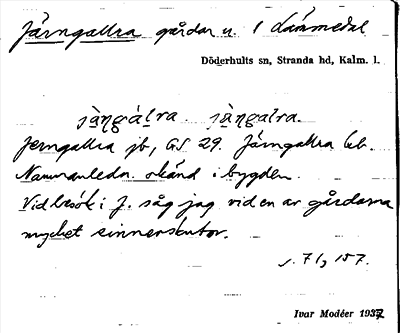 Järngallra gårdar u. 1 Lämmedal
Döderhults sn, Stranda hd, Kalm. l.
jàŋgálra. jàŋgalra.
Jerngallra jb, GS 29. Järngallra Eb.
Namnanledn. okänd i bygden.
Vid besök i J. såg jag vid en av gårdarna
mycket sinnerskutor.
s. 71, 157.
Ivar Modéer 1937